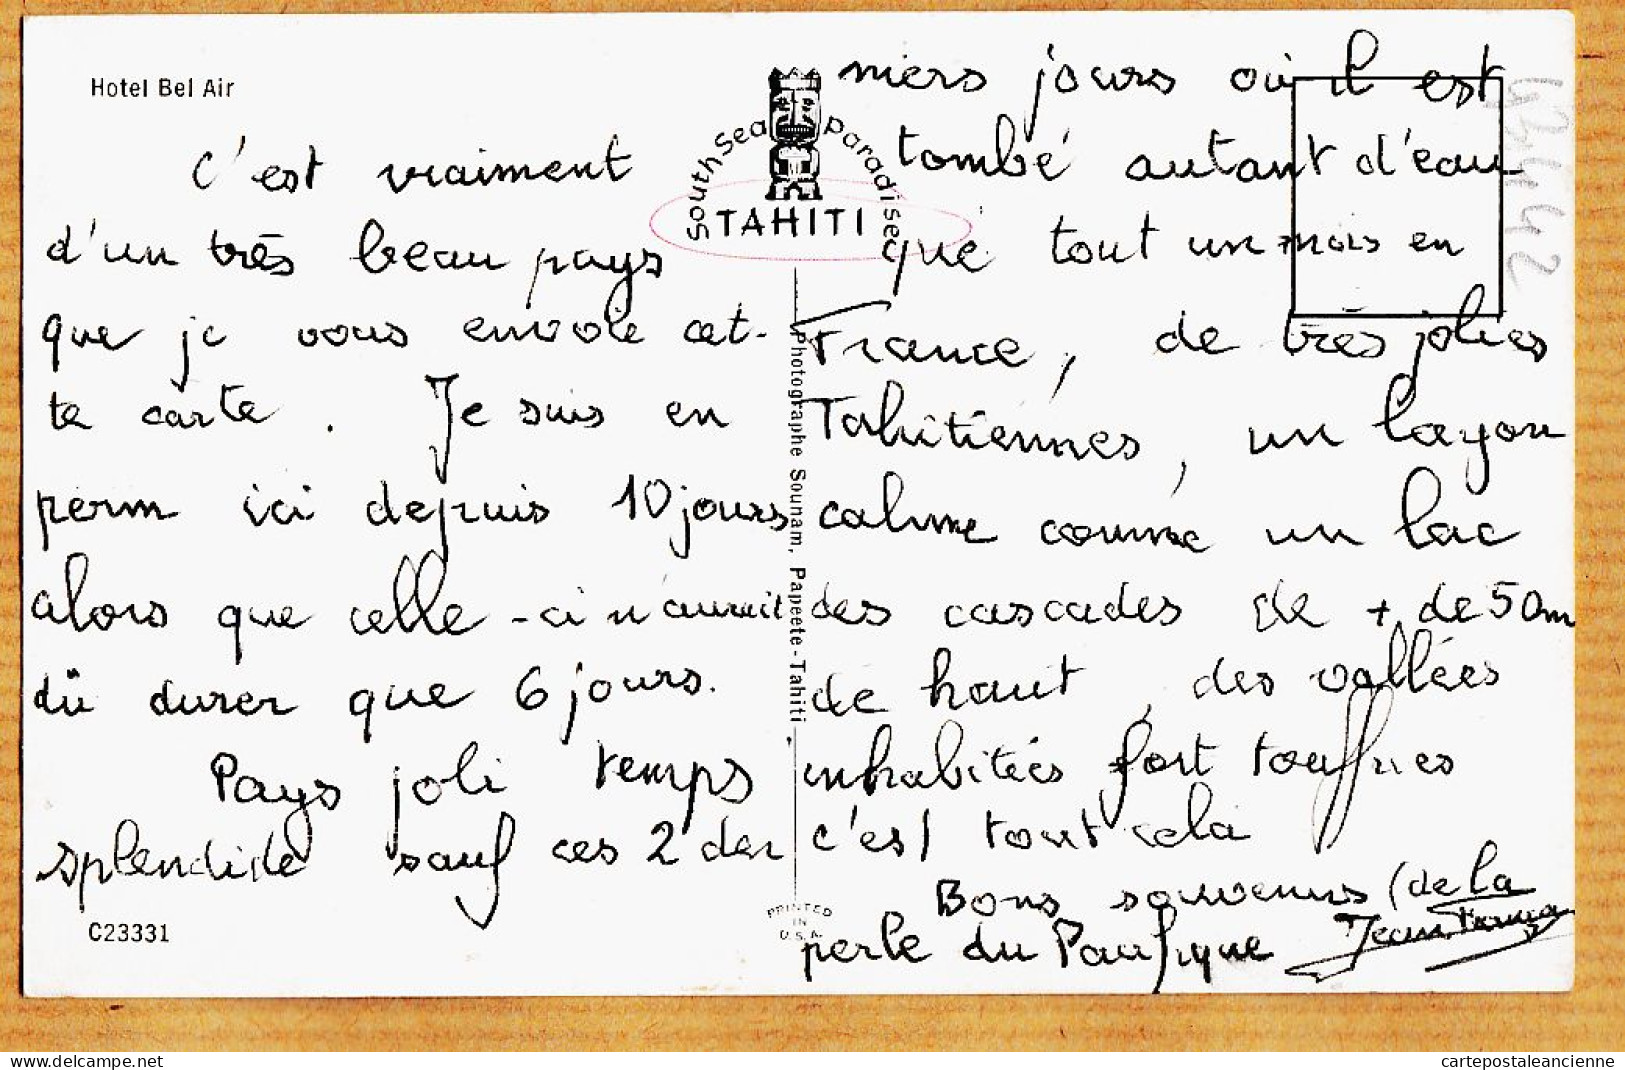 Hotel Bel Air
C'est vraiment
d'un très beau pays
que je vous envoie cet-
te carte. Je suis en
perm ici depuis 10 jours
alors que celle-ci n'aurait
dû durer que 6 jours.
Pays joli temps
splendide sauf ces 2 der
C23331
South Sea Paradise
TAHITI
Photographe Sounam, Papeete-Tahiti
PRINTED
IN
U.S.A.
niers jours où il est
tombé autant d'eau
que tout un mois en
France, de très jolies
Tahitiennes, un lagon
calme comme un lac
des cascades de + de 50m
de haut, des vallées
inhabitées fort touffues
c'est tout cela
Bons souvenirs (de la
perle du Pacifique
cartepostaleancienne.com
cartepostaleancienne